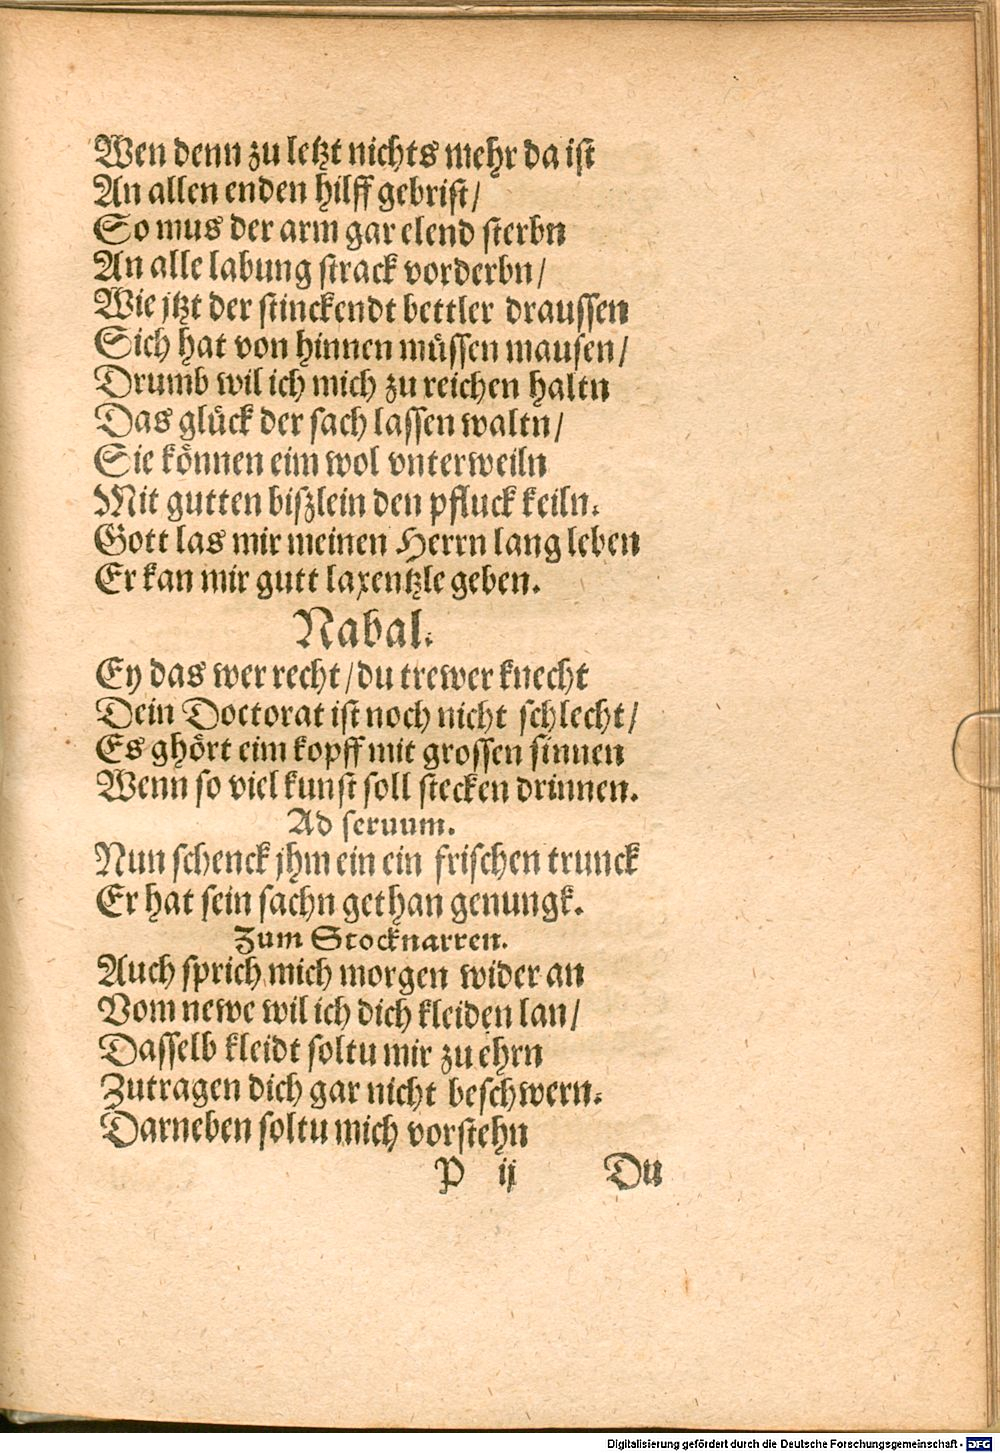 Wen denn zu letzt nichts mehr da ist
An allen enden hilff gebrist/
So mus der arm gar elend sterbn
An alle labung strack vorderbn/
Wie jtzt der stinckendt bettler draussen
Sich hat von hinnen müssen mausen/
Drumb wil ich mich zu reichen haltn
Das glück der sach lassen waltn/
Sie können eim wol vnterweiln
Mit gutten biszlein den pfluck keiln.
Gott las mir meinen Herrn lang leben
Er kan mir gutt laxentzle geben.
Nabal.
Ey das wer recht/du trewer knecht
Dein Doctorat ist noch nicht schlecht/
Es ghört eim kopff mit grossen sinnen
Wenn so viel kunst soll stecken drinnen.
Ad seruum.
Nun schenck jhm ein ein frischen trunck
Er hat sein sachn gethan genungk.
Zum Stocknarren.
Auch sprich mich morgen wider an
Vom newe wil ich dich kleiden lan/
Dasselb kleidt soltu mir zu ehrn
Zutragen dich gar nicht beschwern.
Darneben soltu mich vorstehn
P ij Du
Digitalisierung gefördert durch die Deutsche Forschungsgemeinschaft - DFG